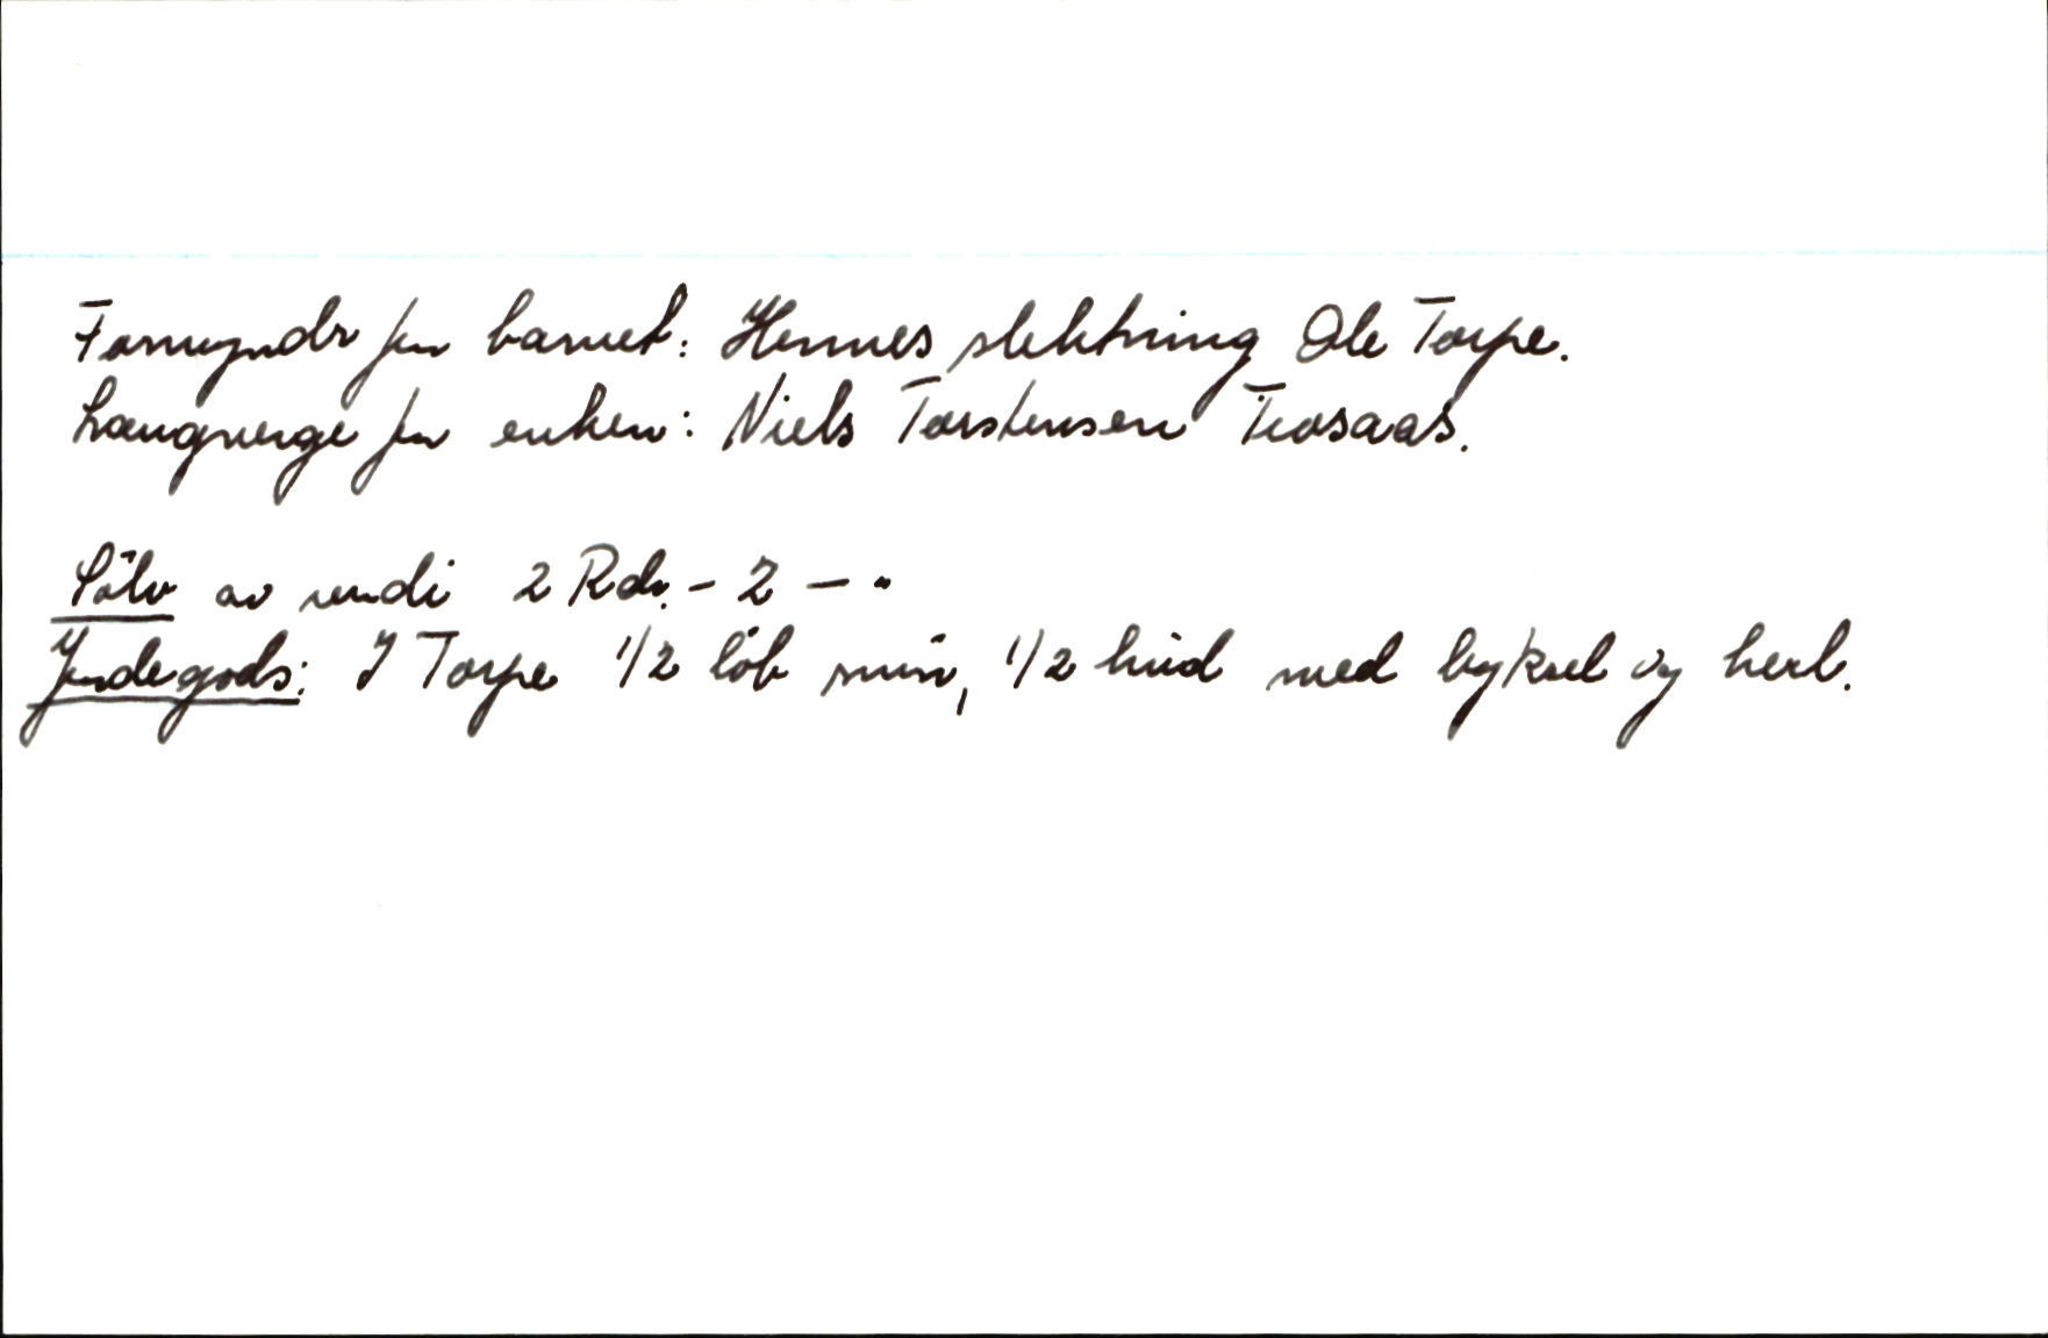 Formyndr for barnet: Hennes slektning Ole Torpe.
Laugverge for enken: Niels Torstensen Traasaas.
Sölv av verdi 2 Rdr. - 2 - "
Jordegods: I Torpe 1/2 löb smör, 1/2 hud med byksel og herl.